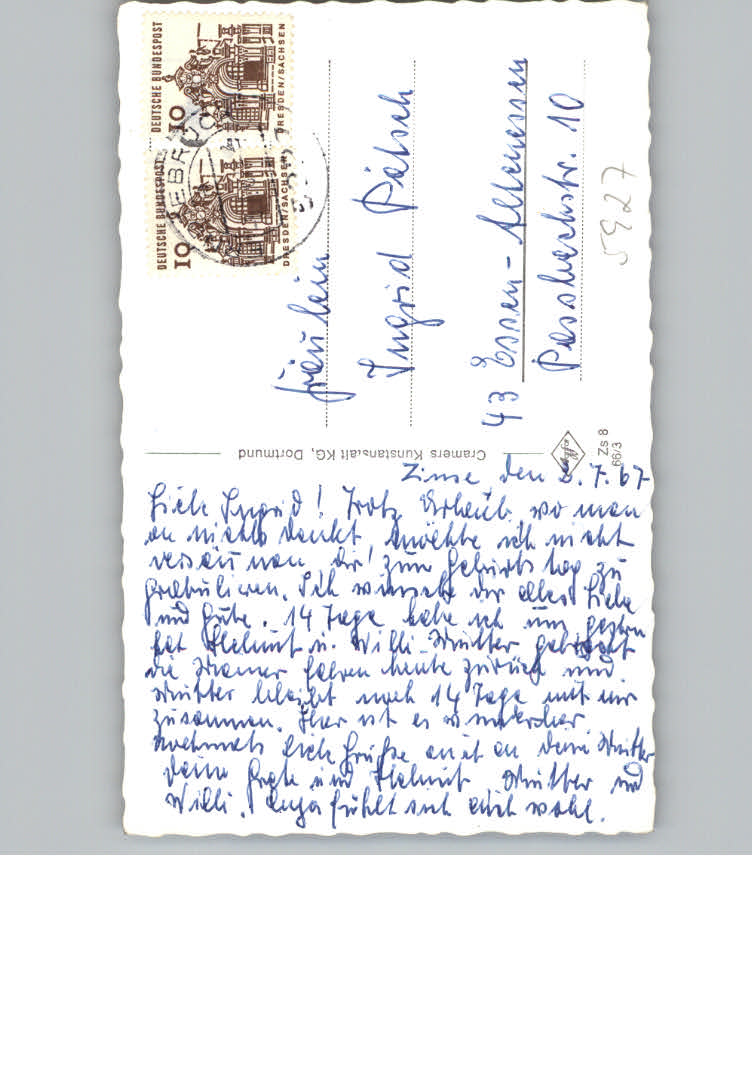 DEUTSCHE BUNDESPOST
10
DRESDEN/SACHSEN
DEUTSCHE BUNDESPOST
10
DRESDEN/SACHSEN
EBRÜC
Fräulein
Ingrid Pätsch
43 Essen-Altenessen
10
5927
Cramers Kunstanstalt KG, Dortmund
Zs 8
66/3
Zinse, den 7.67
Liebe Ingrid! Trotz Urlaub, wo man
an nichts denkt möchte ich nicht
versäumen, dir zum Geburtstag zu
gratulieren. Ich wünsche dir alles Liebe
und Gute. 14 Tage habe ich um gestern
hat Helmut u. Willi Mutter gebracht
die Männer fahren heute zurück und
Mutter bleibt noch 14 Tage mit mir
zusammen. Hier ist es wunderbar
nochmals Grüße an deine Mutter
deine und Helmut Mutter und
Willi. fühlt sich auch wohl.